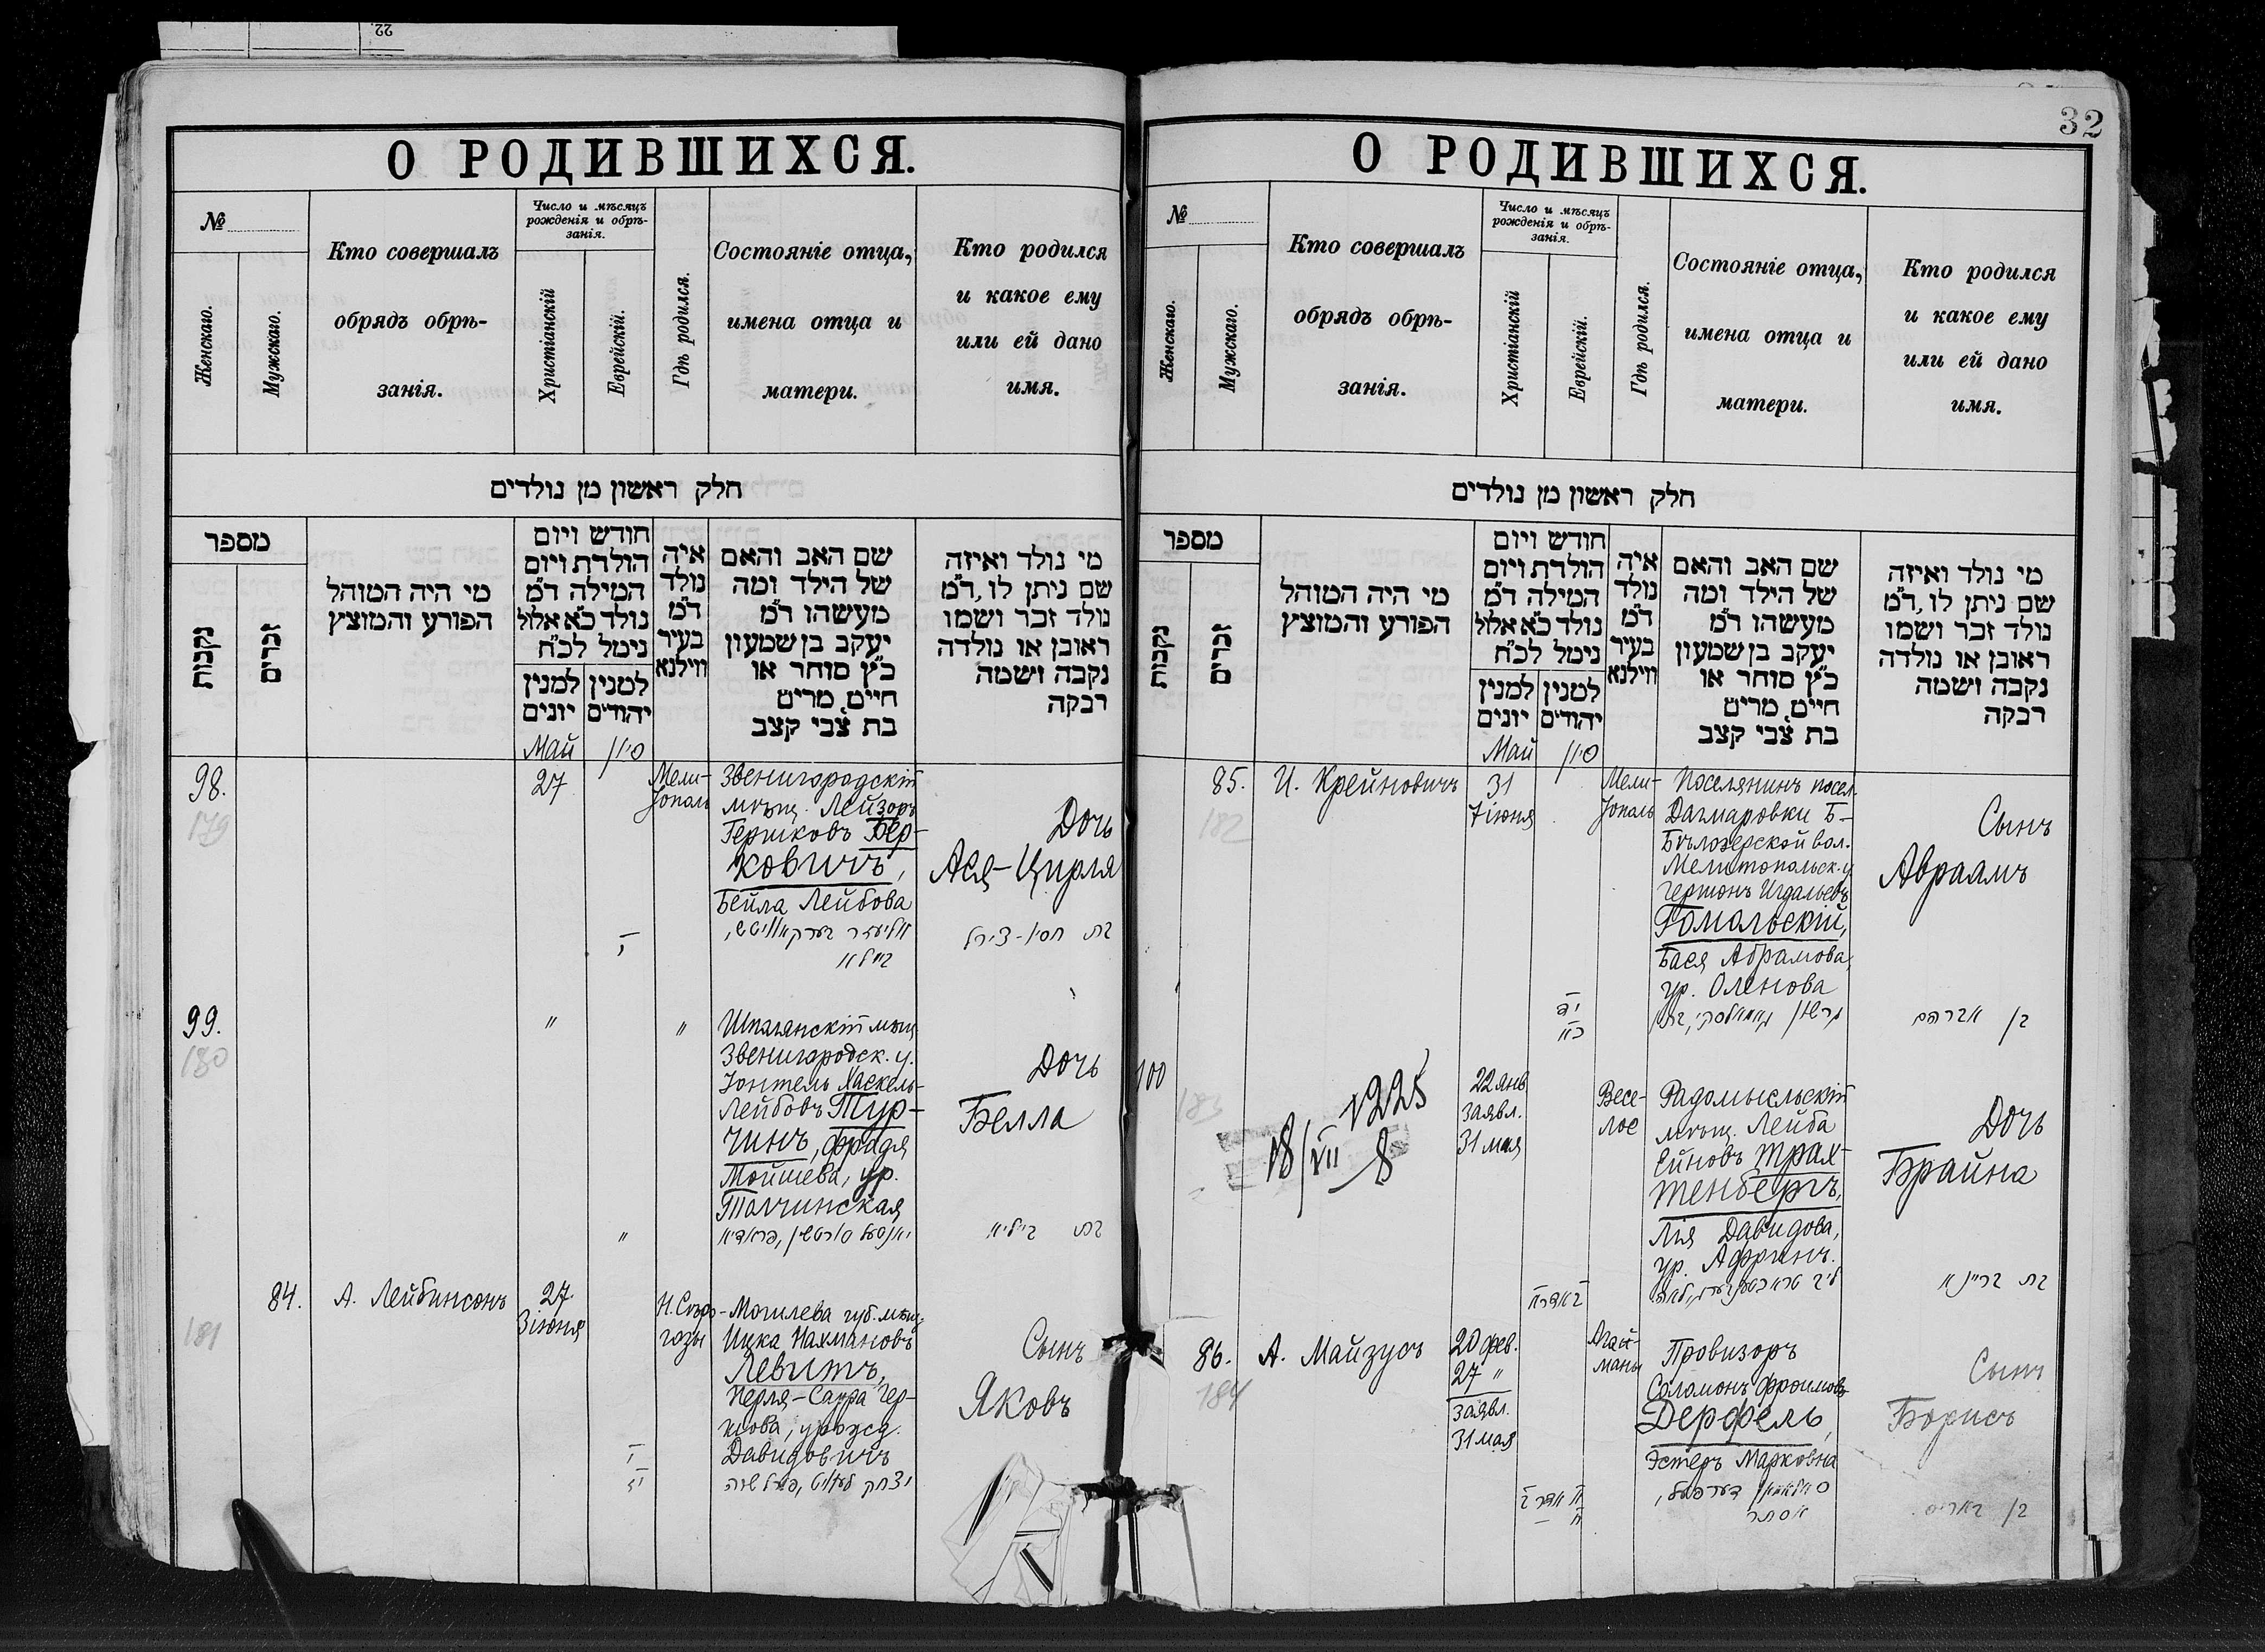 22.
О РОДИВШИХСЯ.
№
Женскаго.
Мужскаго.
Кто совершалъ
обрядъ обрѣ-
занія.
Число и мѣсяцъ
рожденія и обрѣ-
занія.
Христіанскій
Еврейскій.
Гдѣ родился.
Состояніе отца,
имена отца и
матери.
Кто родился
и какое ему
или ей дано
имя.
חלק ראשון מן נולדים
מספר
נקבות
זכרים
מי היה המוהל
הפורע והמוצץ
חודש ויום
הולדת ויום
המילה ד״מ
נולד כ״א אלול
נימל לכ״ח
למנין
יונים
למנין
יהודים
איה
נולד
ד״מ
בעיר
ווילנא
שם האב והאם
של הילד ומה
מעשהו ד״מ
יעקב בן שמעון
כ״ץ סוחר או
חיים, מרים
בת צבי קצב
מי נולד ואיזה
שם ניתן לו, ד״מ
נולד זכר ושמו
ראובן או נולדה
נקבה ושמה
רבקה
Май
סיון
98.
179
27
Мели-
тополь
Звенигородскій
мѣщ. Лейзоръ
Гершковъ Бер-
ковичъ,
Бейла Лейбова
Дочь
Ася-Цирля
99.
180
"
"
Шполянскій мѣщ.
Звенигородск. у.
Іонтель Хаскель-
Лейбовъ Тур-
чинъ, Фрадя
Мойшева, ур.
Толчинская
"
Дочь
Белла
84.
181
А. Лейбинсонъ
27
3 іюня
Н. Сѣро-
гозы
Могилева губ. мѣщ.
Ицка Нахмановъ
Левитъ,
Перля-Сарра Гер-
шова, урожд.
Давидовичъ
Сынъ
Яковъ
32
О РОДИВШИХСЯ.
№
Женскаго.
Мужскаго.
Кто совершалъ
обрядъ обрѣ-
занія.
Число и мѣсяцъ
рожденія и обрѣ-
занія.
Христіанскій
Еврейскій.
Гдѣ родился.
Состояніе отца,
имена отца и
матери.
Кто родился
и какое ему
или ей дано
имя.
חלק ראשון מן נולדים
מספר
נקבות
זכרים
מי היה המוהל
הפורע והמוצץ
חודש ויום
הולדת ויום
המילה ד״מ
נולד כ״א אלול
נימל לכ״ח
למנין
יונים
למנין
יהודים
איה
נולד
ד״מ
בעיר
ווילנא
שם האב והאם
של הילד ומה
מעשהו ד״מ
יעקב בן שמעון
כ״ץ סוחר או
חיים, מרים
בת צבי קצב
מי נולד ואיזה
שם ניתן לו, ד״מ
נולד זכר ושמו
ראובן או נולדה
נקבה ושמה
רבקה
Май
סיון
85.
182
И. Крейновичъ
31
7 іюня
Мели-
тополь
Поселянинъ посел.
Дагмаровки Б-
Бѣлозерской вол.
Мелитопольск. у.
Гершонъ Игдальевъ
Гомольскій,
Бася Абрамова,
ур. Оленова
Сынъ
Авраамъ
בן אברהם
100
183
1225
18/VII 8
22 янв
заявл.
31 мая
Весе-
лое
Радомысльскій
мѣщ. Лейба
Ейновъ Трах-
тенбергъ,
Лія Давидова,
ур. Адрянъ.
Дочь
Брайна
בת בריינא
86.
184
А. Майзусъ
20 фев.
27 "
заявл.
31 мая
Агай-
маны
Провизоръ
Соломонъ Фроимовъ
Дерфель,
Эстеръ Марковна
אסתר
Сынъ
Борисъ
בן באריס